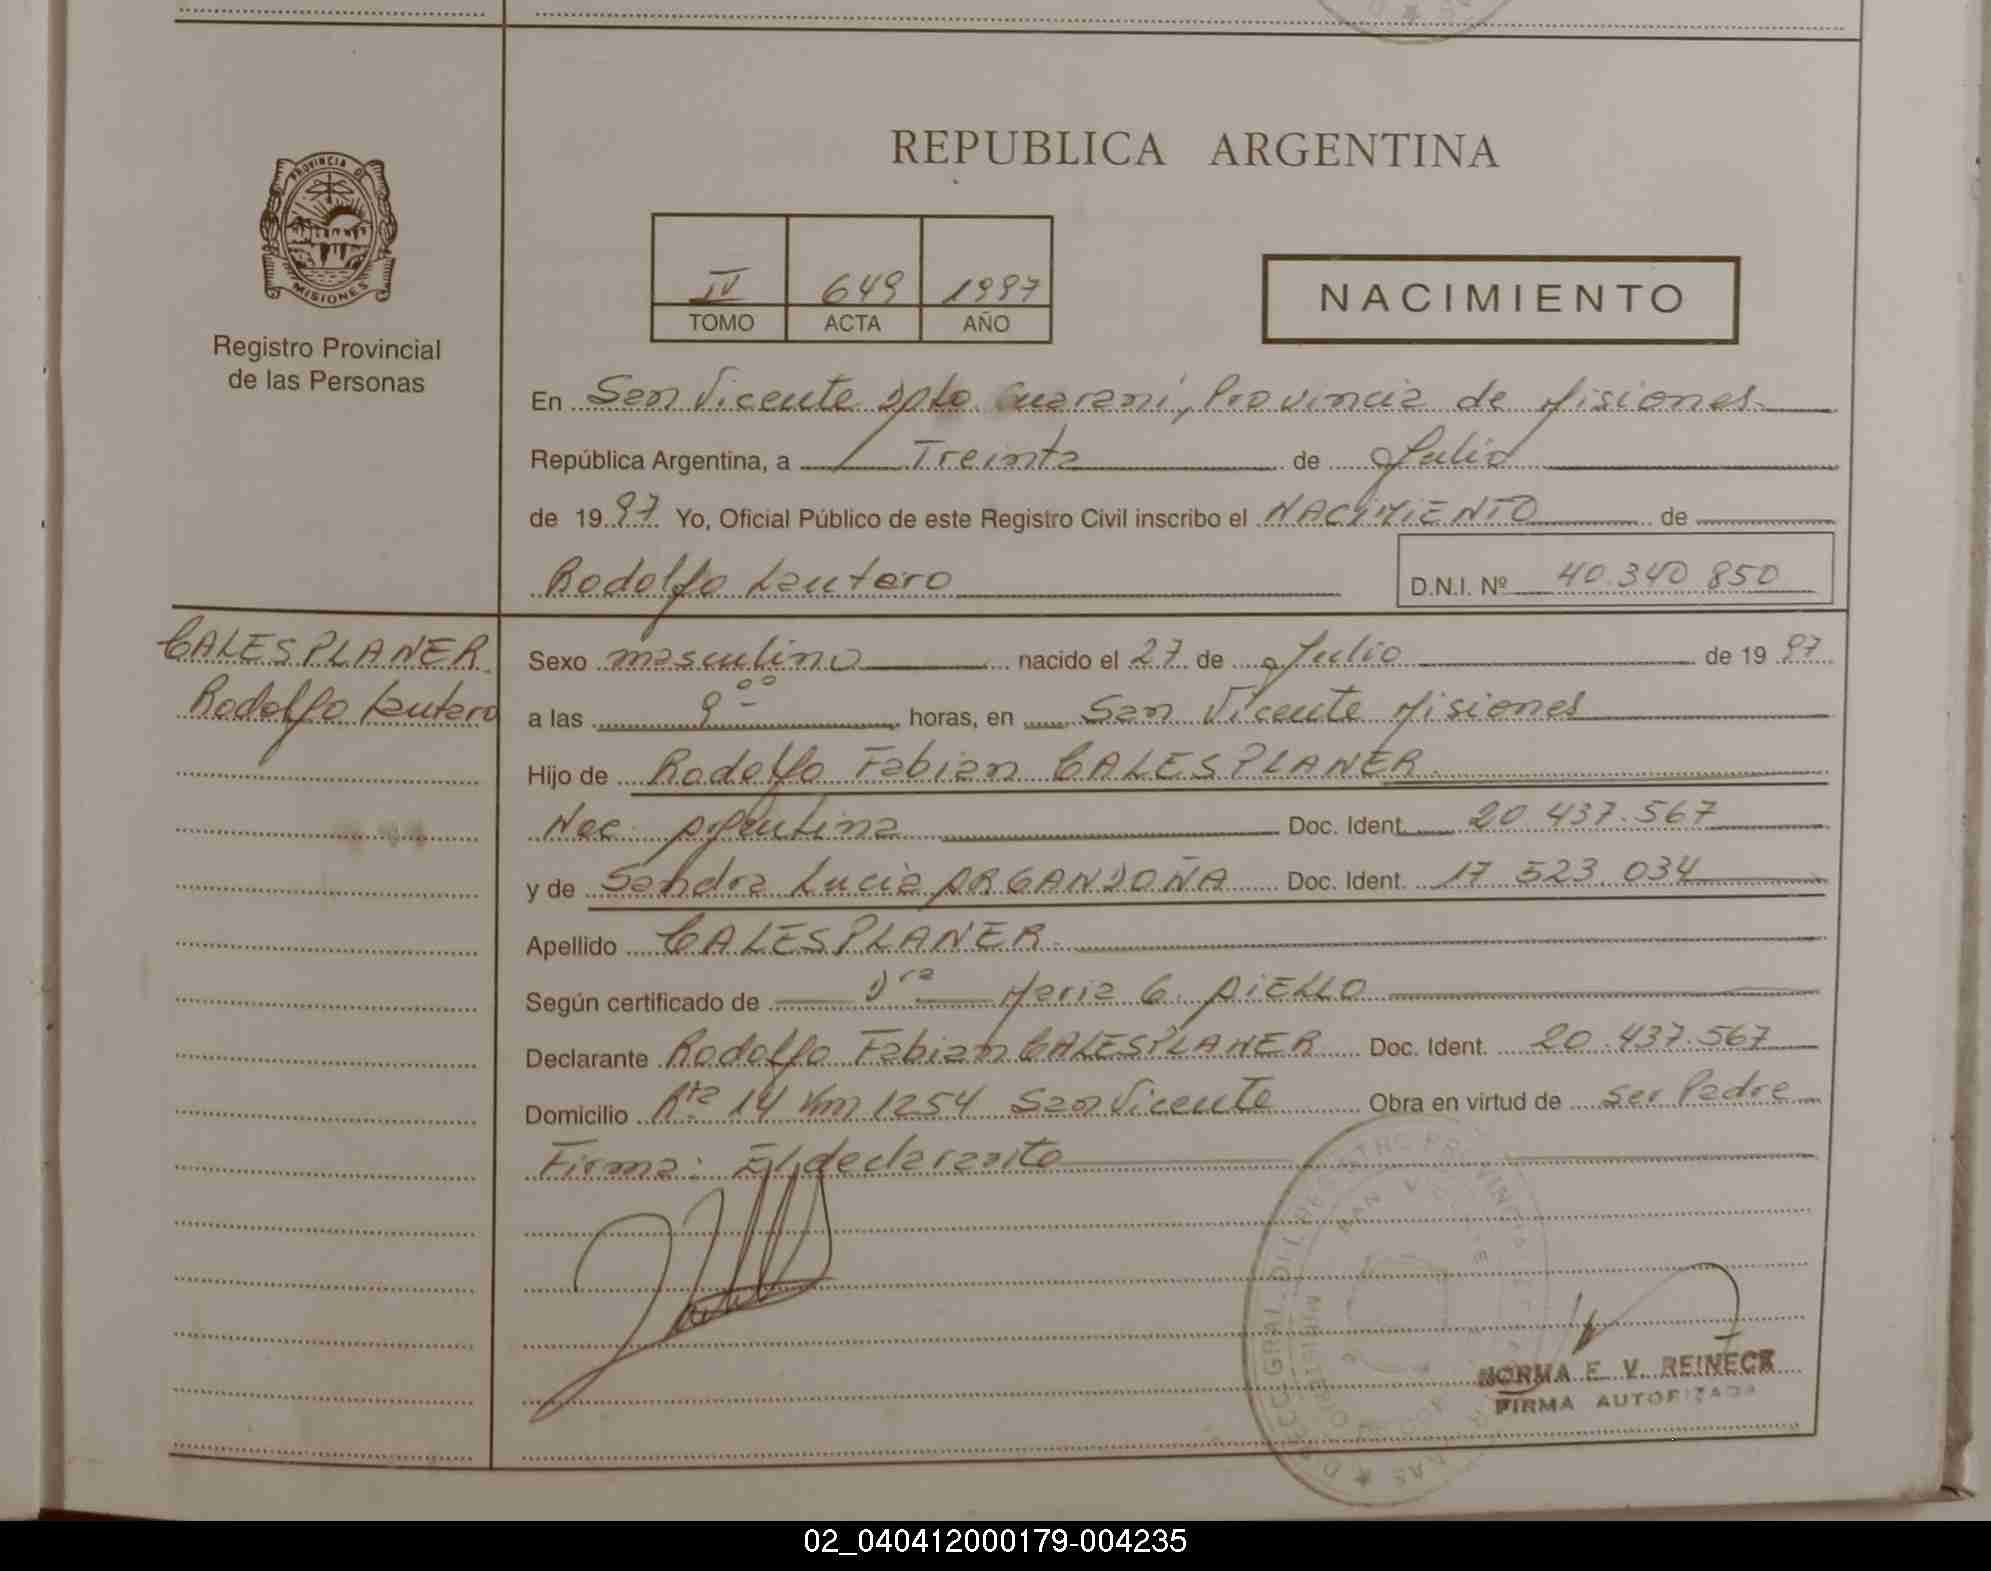 REPUBLICA ARGENTINA
PROVINCIA DE
MISIONES
Registro Provincial
de las Personas
IV 649 1997
TOMO ACTA AÑO
NACIMIENTO
En San Vicente Dpto. Guarani, Provincia de Misiones
República Argentina, a Treinta de Julio
de 1997 Yo, Oficial Público de este Registro Civil inscribo el NACIMIENTO de
Rodolfo Lautaro D.N.I. Nº 40.340.850
CALESPLANER
Rodolfo Lautaro
Sexo masculino nacido el 27 de Julio de 1997
a las 9 00 horas, en San Vicente Misiones
Hijo de Rodolfo Fabian CALESPLANER
Nac. Argentina Doc. Ident. 20.437.567
y de Sandra Lucia ARGANDOÑA Doc. Ident. 17.523.034
Apellido CALESPLANER
Según certificado de Dra Maria G. AIELLO
Declarante Rodolfo Fabian CALESPLANER Doc. Ident. 20.437.567
Domicilio Rta 14 Km 1254 San Vicente Obra en virtud de ser Padre
Firma: El declarante
NORMA E. V. REINECK
FIRMA AUTORIZADA
02_040412000179-004235